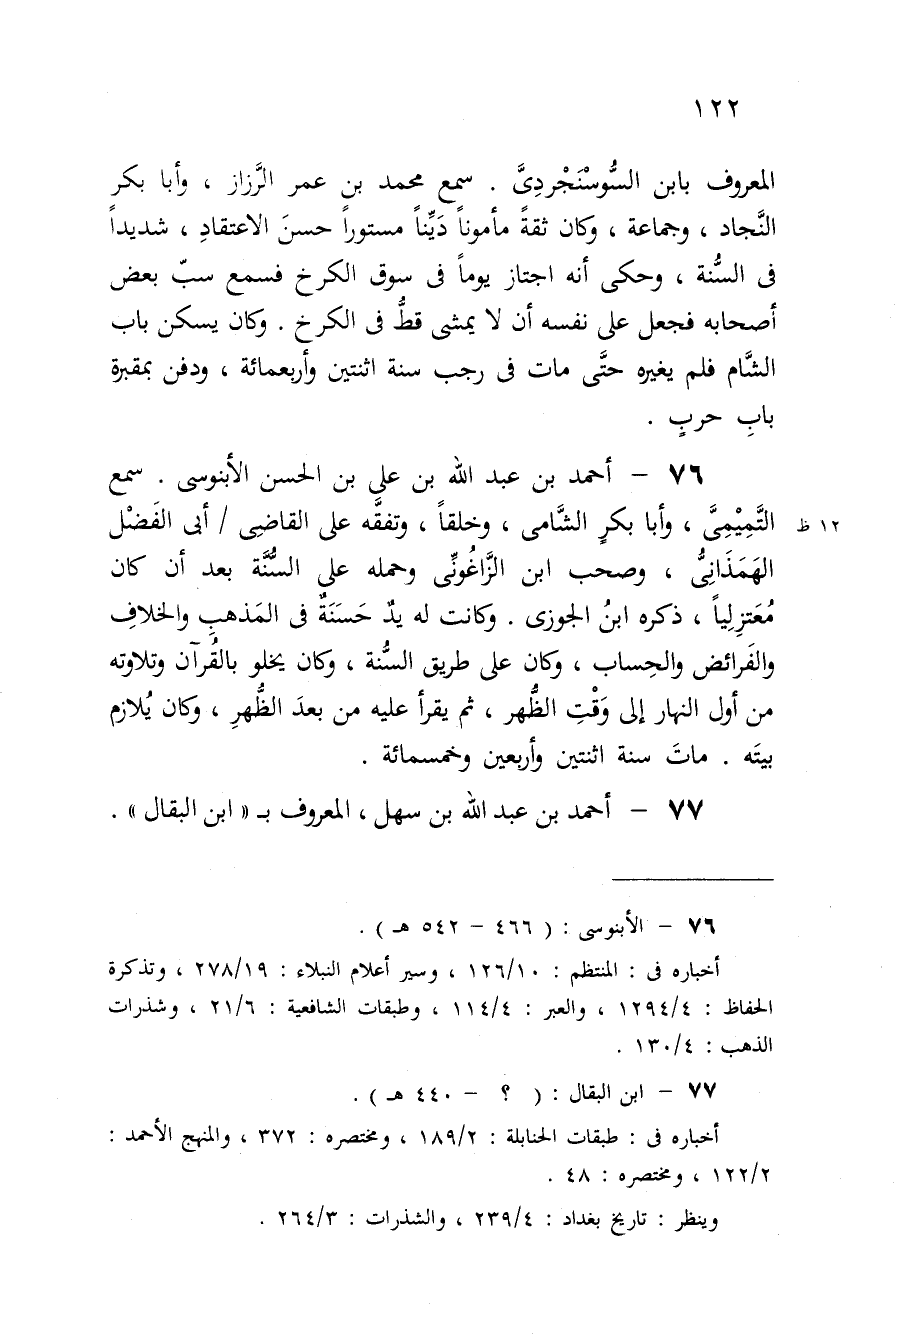 ١٢٢
المعروف بابن السُّوسْنَجْردِىَّ . سمع محمد بن عمر الرَّزاز ، وأبا بكر
النَّجاد ، وجماعة ، وكان ثقةً مأموناً دَيِّناً مستوراً حسنَ الاعتقادِ ، شديداً
فى السُّنة ، وحكى أنه اجتاز يوماً فى سوق الكرخ فسمع سبّ بعض
أصحابه فجعل على نفسه أن لا يمشى قطُّ فى الكرخ . وكان يسكن باب
الشَّام فلم يغيره حتَّى مات فى رجب سنة اثنتين وأربعمائة ، ودفن بمقبرة
بابِ حربٍ .
٧٦ – أحمد بن عبد الله بن على بن الحسن الأبنوسى . سمع
التَّمِيْمِىَّ ، وأبا بكرٍ الشَّامى ، وخلقاً ، وتفقَّه على القاضِى / أبى الفَضْل ١٢ ظ
الهَمَذَانِىُّ ، وصحب ابن الزَّاغُونِّى وحمله على السُّنَّة بعد أن كان
مُعَتزِلِياً ، ذكره ابنُ الجوزى . وكانت له يدٌ حَسَنَةٌ فى المَذهبِ والخلافِ
والفَرائض والحِساب ، وكان على طريق السُّنة ، وكان يخلو بالقُرآن وتلاوته
من أول النهار إلى وَقْتِ الظُّهر ، ثم يقرأ عليه من بعدَ الظُّهرِ ، وكان يُلازم
بيتَه . ماتَ سنة اثنتين وأربعين وخمسمائة .
٧٧ – أحمد بن عبد الله بن سهل ، المعروف بـ « ابن البقال » .
٧٦ – الأبنوسى : ( ٤٦٦ – ٥٤٢ هـ ) .
أخباره فى : المنتظم : ١٢٦/١٠ ، وسير أعلام النبلاء : ٢٧٨/١٩ ، وتذكرة
الحفاظ : ١٢٩٤/٤ ، والعبر : ١١٤/٤ ، وطبقات الشافعية : ٢١/٦ ، وشذرات
الذهب : ١٣٠/٤ .
٧٧ – ابن البقال : ( ؟ – ٤٤٠ هـ ) .
أخباره فى : طبقات الحنابلة : ١٨٩/٢ ، ومختصره : ٣٧٢ ، والمنهج الأحمد :
١٢٢/٢ ، ومختصره : ٤٨ .
وينظر : تاريخ بغداد : ٢٣٩/٤ ، والشذرات : ٢٦٤/٣ .